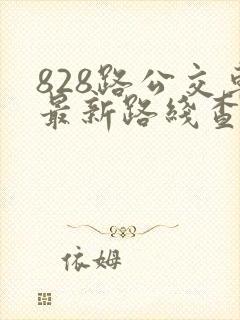 828路公交车
最新路线查
依姆